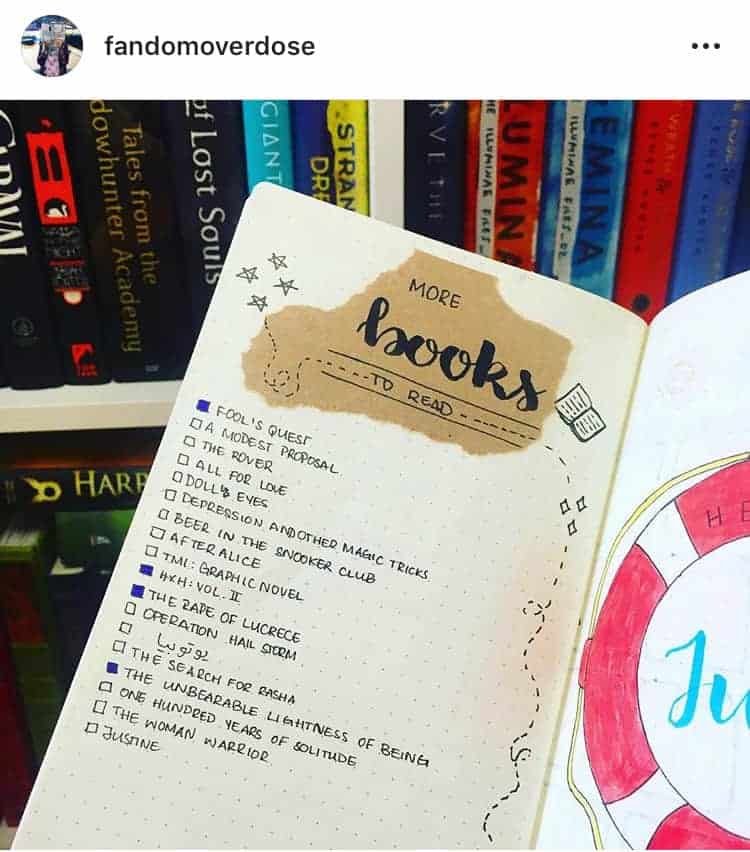 fandomoverdose
Tales from the
dowhunter Academy
of Lost Souls
GIANT
STRAN
DRE
RVE THE
LUMINA
ILLUMINAE FILES
EMINA
ILLUMINAE FILES_02
HARR
MORE
books
TO READ
FOOL'S QUEST
A MODEST PROPOSAL
THE ROVER
ALL FOR LOVE
DOLL'S EYES
DEPRESSION AND OTHER MAGIC TRICKS
BEER IN THE SNOOKER CLUB
AFTER ALICE
TMI: GRAPHIC NOVEL
HXH: VOL. II
THE RAPE OF LUCRECE
OPERATION HAIL STORM
يوتوبيا
THE SEARCH FOR RASHA
THE UNBEARABLE LIGHTNESS OF BEING
ONE HUNDRED YEARS OF SOLITUDE
THE WOMAN WARRIOR
JUSTINE
HE
Ju